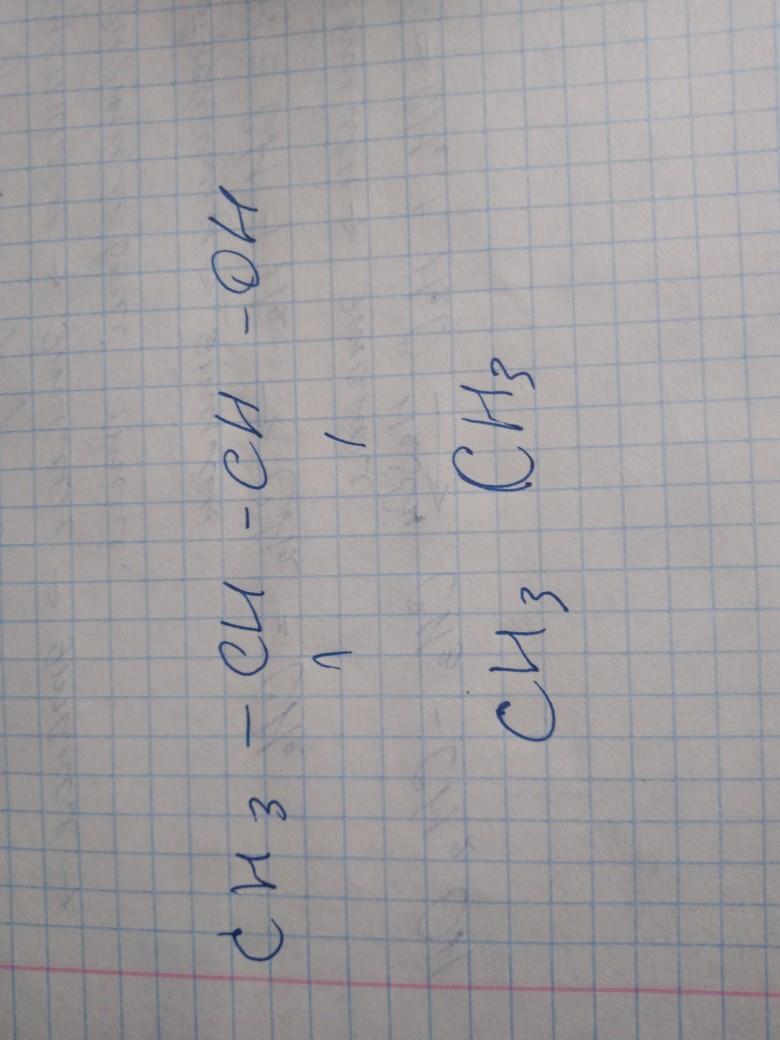 CH3 – CH – CH – OH
CH3 CH3